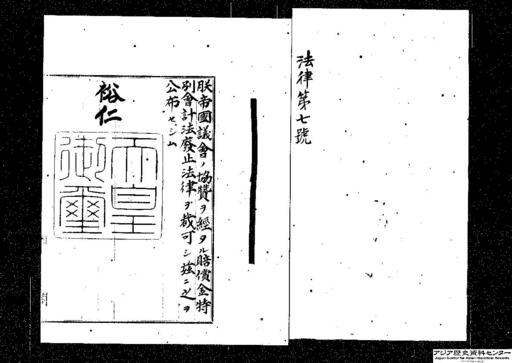 法律第七號
朕帝國議會ノ協贊ヲ經タル賠償金特
別會計法廢止法律ヲ裁可シ茲ニ之ヲ
公布セシム
裕仁
天皇
御璽
アジア歴史資料センター
Japan Center for Asian Historical Records